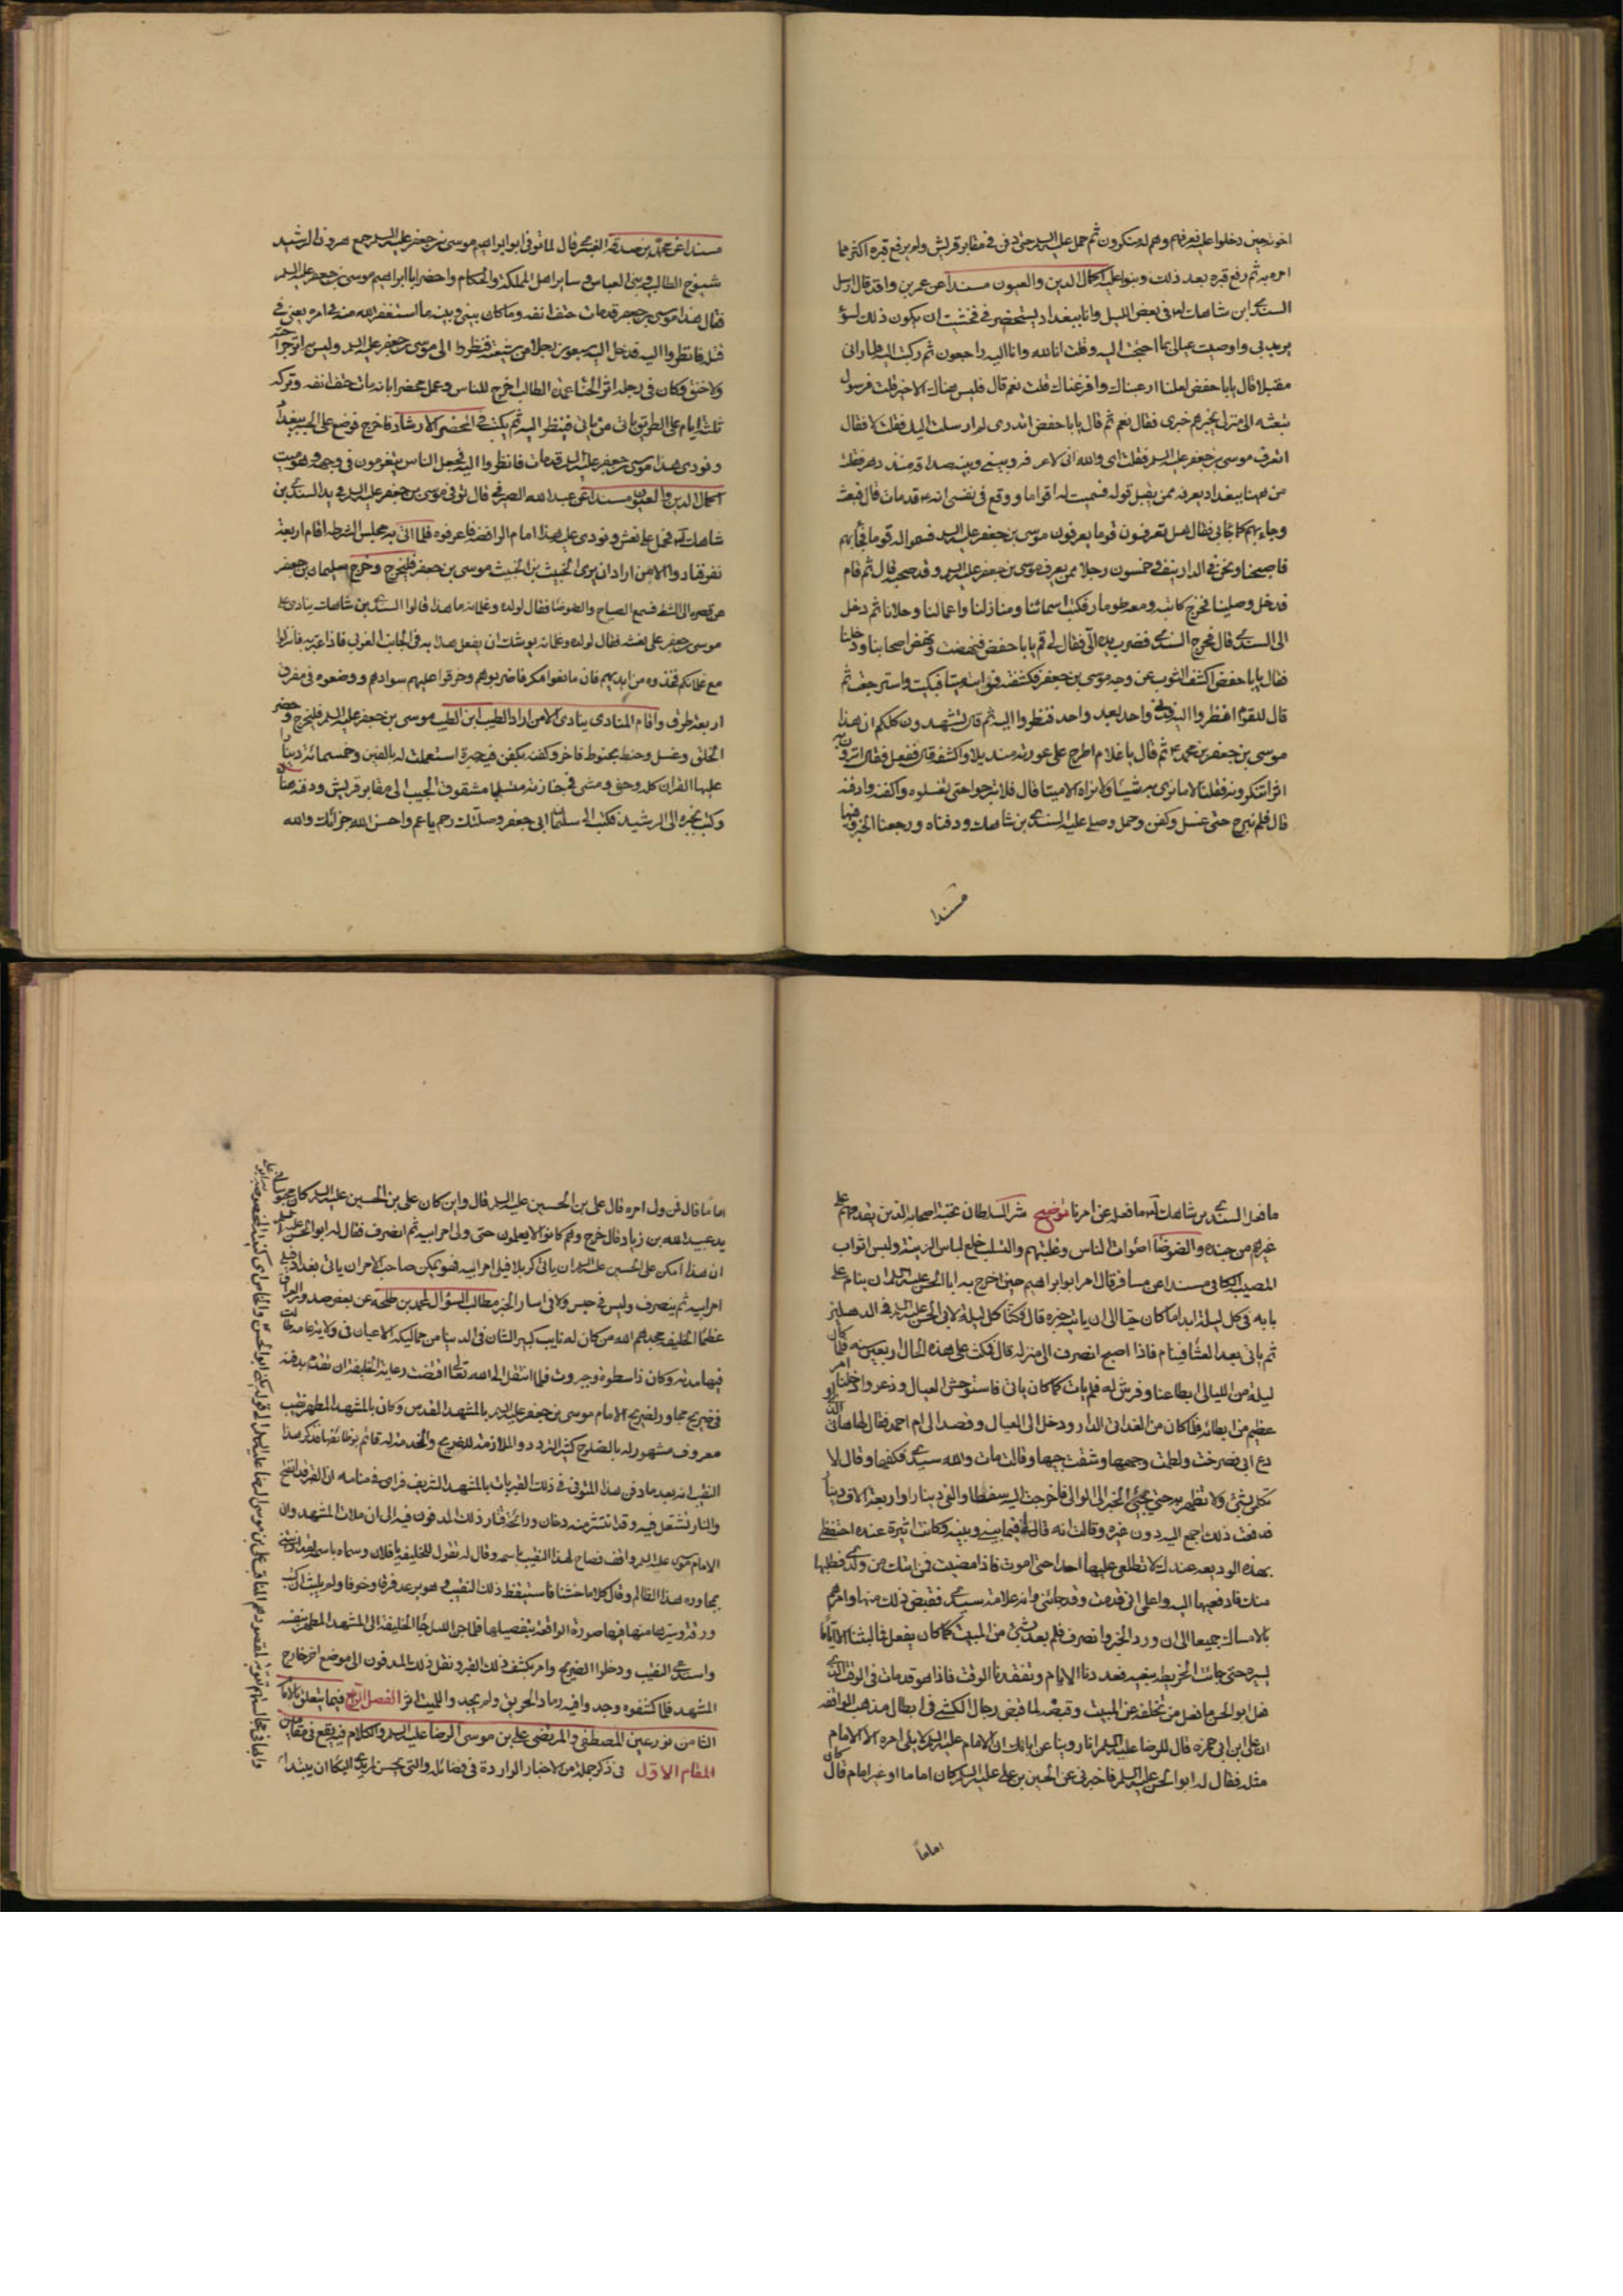 اخوته حين دخلوا عليه فهم وهم له منكرون ثم حمل عليه السلم حتى دفن في مقابر قريش ولم يرفع قبره اكثر مما
امر به ثم رفع قبره بعد ذلك وبنوا عليه اكمال الدين والعيون مسندا عن عمر بن واقد قال ارسل
السندي ابن شاهك لعـ في بعض الليل وانا ببغداد يستحضرني فخشيت ان يكون ذلك لسوء
يريد بي واوصيت عيالي بما احتجت اليه وقلت انا لله وانا اليه راجعون ثم ركبت اليه فلما راني
مقبلا قال يابا حفص لعلنا ارعبناك وافزعناك قلت نعم قال فليس هناك الا خير قلت فرسول
تبعثه الى منزلي يخبرهم خبري فقال نعم ثم قال يابا حفص اتدري لم ارسلت اليك فقلت لا فقال
اتعرف موسى بن جعفر عليه السلم فقلت اي والله اني لاعرفه وبيني وبينه صداقة منذ دهر فقال
من ههنا ببغداد يعرفه ممن يقبل قوله فسميت له اقواما ووقع في نفسي انه ع قد مات قال فبعث
وجاء بهم كما جاء بي فقال هل تعرفون قوما يعرفون موسى بن جعفر عليه السلم فسموا له قوما فجاء بهم
فاصبحنا ونحن في الدار نيف وخمسون رجلا ممن يعرف موسى بن جعفر عليه السلم وقد صحبه قال ثم قام
فدخل وصلينا فخرج كاتبه ومعه طومار فكتب اسمائنا ومنازلنا واعمالنا وحلانا ثم دخل
الى السندي قال فخرج السندي فضرب يده الي فقال لي قم يابا حفص فنهضت ونهض اصحابنا ودخلنا
فقال يابا حفص اكشف الثوب عن وجه موسى بن جعفر فكشفته فرايته ميتا فبكيت واسترجعت ثم
قال للقوم انظروا اليه فدنى واحد بعد واحد فنظروا اليه ثم قال تشهدون كلكم ان هذا
موسى بن جعفر بن محمد ع ثم قال يا غلام اطرح على عورته منديلا واكشفه قال ففعل فقال اترون به
اثرا تنكرونه فقلنا لا ما نرى به شيئا ولا نراه الا ميتا قال فلا تبرحوا حتى تغسلوه واكفنه وادفنه
قال فلم نبرح حتى غسل وكفن وحمل وصلى عليه السندي بن شاهك ودفناه ورجعنا
مسندا
مسندا عن محمد بن صدقة العنبري قال لما توفي ابو ابراهيم موسى بن جعفر عليه السلم جمع هرون الرشيد
شيوخ الطالبية وبني العباس وساير اهل المملكة والحكام واحضر ابا ابراهيم موسى بن جعفر عليه السلم
فقال هذا موسى بن جعفر قد مات حتف انفه وما كان بيني وبينه ما استغفر الله منه في امره يعني في
قتله فانظروا اليه فدخل اليه سبعون رجلا من شيعته فنظروا الى موسى بن جعفر عليه السلم وليس به اثر جراحة
ولا خنق وكان في رجله اثر الحنا عمدة الطالب اخرج للناس وعمل محضرا بانه مات حتف انفه وتركه
ثلثة ايام على الطريق ياتي من ياتي فينظر اليه ثم يكتب في المحضر الارشاد فاخرج فوضع على الجسر ببغداد
ونودي هذا موسى بن جعفر عليه السلم قد مات فانظروا اليه فجعل الناس يتفرسون في وجهه وهو ميت
اكمال الدين والعيون مسندا عن عبد الله الصيرفي قال توفي موسى بن جعفر عليه السلم في يد السندي بن
شاهك لعـ فحمل على نعش ونودي عليه هذا امام الرافضة فاعرفوه فلما اتى به مجلس الشرطة اقام اربعة
نفر فنادوا الا من اراد ان يرى الخبيث بن الخبيث موسى بن جعفر فليخرج وخرج سليمان بن جعفر
من قصره الى الشط فسمع الصياح والضوضا فقال لولده وغلمانه ما هذا قالوا السندي بن شاهك ينادي على
موسى بن جعفر على نعشه فقال لولده وغلمانه يوشك ان يفعل هذا به في الجانب الغربي فاذا عبر به فانزلوا
مع غلمانكم فخذوه من ايديهم فان مانعوكم فاضربوهم وخرقوا عليهم سوادهم ووضعوه في مفرق
اربعة طرق واقام المنادي ينادي الا من اراد الطيب ابن الطيب موسى بن جعفر عليه السلم فليخرج وحضر
الخلق وغسل وحنط بحنوط فاخر وكفنه بكفن فيه حبرة استعملت له بالفين وخمسمائة دينار
عليها القران كله وحفى ومشى في جنازته متسلبا مشقوق الجيب الى مقابر قريش ودفنه هناك
وكتب بخبره الى الرشيد فكتب الى سليمان ابن ابي جعفر وصلتك رحم يا عم واحسن الله جزائك والله
ما فعل السندي بن شاهك لعـ ما فعله عن امرنا توضيح شر السلطان نخبة اصحابه الذين يقدمهم على
غيرهم من جنده والضوضا اصوات الناس وغلبتهم والتسلب خلع لباس الزينة ولبس اثواب
المصيبة الكافي مسندا عن مسافر قال امر ابو ابراهيم حين اخرج به ابا الحسن عليه السلم ان ينام على
بابه في كل ليلة ابدا ما كان حيا الى ان ياتيه خبره قال فكنا كل ليلة لابي الحسن عليه السلم في الدهليز
ثم ياتي بعد العشا فينام فاذا اصبح انصرف الى منزله قال فمكث على هذه الحال اربع سنين فلما كان
ليلة من الليالي ابطا عنا وفرش له فلم يات كما كان ياتي فاستوحش العيال وذعروا ودخلنا امر
عظيم من ابطائه فلما كان من الغد اتى الدار ودخل الى العيال وقصد الى ام احمد فقال لها هاتي التي
اودع ابي فصرخت ولطمت وجهها وشقت جيبها وقالت مات والله سيدي فكفها وقال لا
تكلمي بشيء ولا تظهريه حتى يجيء الخبر الى الوالي فاخرجت اليه سفطا والفي دينار او اربعة الاف دينار
فدفعت ذلك اجمع اليه دون غيره وقالت انه قال لي فيما بيني وبينه وكانت اثيرة عنده احتفظي
بهذه الوديعة عندك لا تطلعي عليها احدا حتى اموت فاذا مضيت فمن اتاك من ولدي فطلبها
منك فادفعيها اليه واعلمي اني قد مت وقد جائتني والله علامة سيدي فقبض ذلك منها وامرهم
بالامساك جميعا الى ان ورد الخبر وانصرف فلم يعد بشيء من المبيت كما كان يفعل فما لبثنا الا اياما
يسيرة حتى جائت الخريطة بنعيه فعددنا الايام وتفقدنا الوقت فاذا هو قد مات في الوقت الذي
فعل ابو الحسن ما فعل من تخلفه عن المبيت وقبضه لما قبض رجال الكشي في ابطال مذهب الواقفة
ان علي ابن ابي حمزة قال للرضا عليه السلم انا روينا عن ابائك ان الامام عليه السلم لا يلي امره الا الامام
مثله فقال له ابو الحسن عليه السلم فاخبرني عن الحسين بن علي عليه السلم كان اماما او غير امام قال كان
اماما
اماما قال فمن ولي امره قال علي بن الحسين عليه السلم قال واين كان علي بن الحسين عليه السلم كان محبوسا في
يد عبيد الله بن زياد قال خرج وهم كانوا لا يعلمون حتى ولي امر ابيه ثم انصرف فقال له ابو الحسن عليه السلم
ان هذا امكن علي بن الحسين عليه السلم ان ياتي كربلا فيلي امر ابيه فهو يمكن صاحب الامر ان ياتي بغداد فيلي
امر ابيه ثم ينصرف وليس في حبس ولا في اسار الخبر مطالب السؤل لمحمد بن طلحة عن بعض صدور العراق
عظما الخليفة مجدهم الله من كان له نايب كبير الشان في الدنيا من مماليكه الاعيان في ولاية عامة طالت
فيها مدته وكان ذا سطوة وجبروت فلما انتقل الى الله تعالى اقتضت رعاية الخليفة ان تقدم بدفنه
في ضريح مجاور لضريح الامام موسى بن جعفر عليه السلم بالمشهد المقدس وكان بالمشهد المطهر نقيب
معروف مشهود له بالصلاح كثير التردد والملازمة للضريح والخدمة له قائم بوظائفها فذكر هذا
النقيب انه بعد ما دفن هذا المتوفى في ذلك القبر بات بالمشهد الشريف فراى في منامه ان القبر قد انفتح
والنار تشتعل فيه وقد انتشر منه دخان ورائحة قتار ذلك المدفون فيه الى ان ملات المشهد وان
الامام موسى عليه السلم واقف فصاح لهذا النقيب باسمه وقال له تقول للخليفة يا فلان وسماه باسمه لقد اذيتني
بمجاورة هذا الظالم وقال كلاما خشنا فاستيقظ ذلك النقيب وهو يرعد فرقا وخوفا ولم يلبث ان كتب
ورقة وسيرها منهيا فيها صورة الواقعة بتفصيلها فلما جن الليل جاء الخليفة الى المشهد المطهر بنفسه
واستدعى النقيب ودخلوا الضريح وامر بكشف ذلك القبر ونقل ذلك المدفون الى موضع اخر خارج
المشهد فلما كشفوه وجدوا فيه رماد الحريق ولم يجدوا للميت اثرا الفصل الرابع فيما يتعلق بالامام
الثامن نور عين المصطفى والمرتضى علي بن موسى الرضا عليه السلم والكلام فيه يقع في مقامين
المقام الاول في ذكر جملة من الاخبار الواردة في فضائله والتي يحسن لمريد البكا ان يبتدا